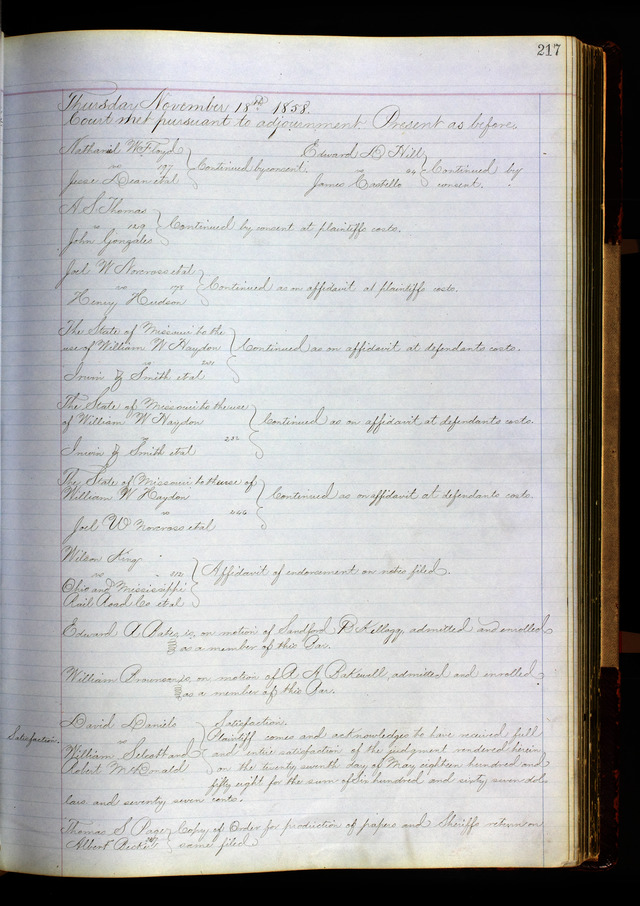 217
Thursday November 18th 1858.
Court met pursuant to adjournment. Present as before.
Nathaniel W Floyd
vs 177 Continued by consent.
Jesse Dean et al
Edward D Hill
vs 24 Continued by
James Castello consent.
A S Thomas
vs 129 Continued by consent at plaintiffs costs.
John Gonzales
Joel W Norcross et al
vs 178 Continued as on affidavit at plaintiffs costs.
Henry Hudson
The State of Missouri to the
use of William W Haydon Continued as on affidavit at defendants costs.
vs
Irwin Z Smith et al
The State of Missouri to the use
of William W Haydon Continued as on affidavit at defendants costs.
vs
Irwin Z Smith et al
The State of Missouri to the use of
William W Haydon Continued as on affidavit at defendants costs.
vs
Joel W Norcross et al
Wilson King
vs 112 Affidavit of endorsement on notes filed.
Ohio and Mississippi
Rail Road Co et al
Edward A is, on motion of Sandford B Kellogg, admitted and enrolled
as a member of this Bar.
William Brownson is, on motion of R A Bakewell, admitted and enrolled
as a member of this Bar.
David Daniels Satisfaction.
Satisfaction. vs Plaintiff comes and acknowledges to have received full
William and and entire satisfaction of the judgment rendered herein
Robert McDonald on the twenty seventh day of May eighteen hundred and
fifty eight for the sum of Six hundred and sixty seven dol
lars and seventy seven cents.
Thomas S Page Copy of Order for production of papers and Sheriffs return on
Albert same filed